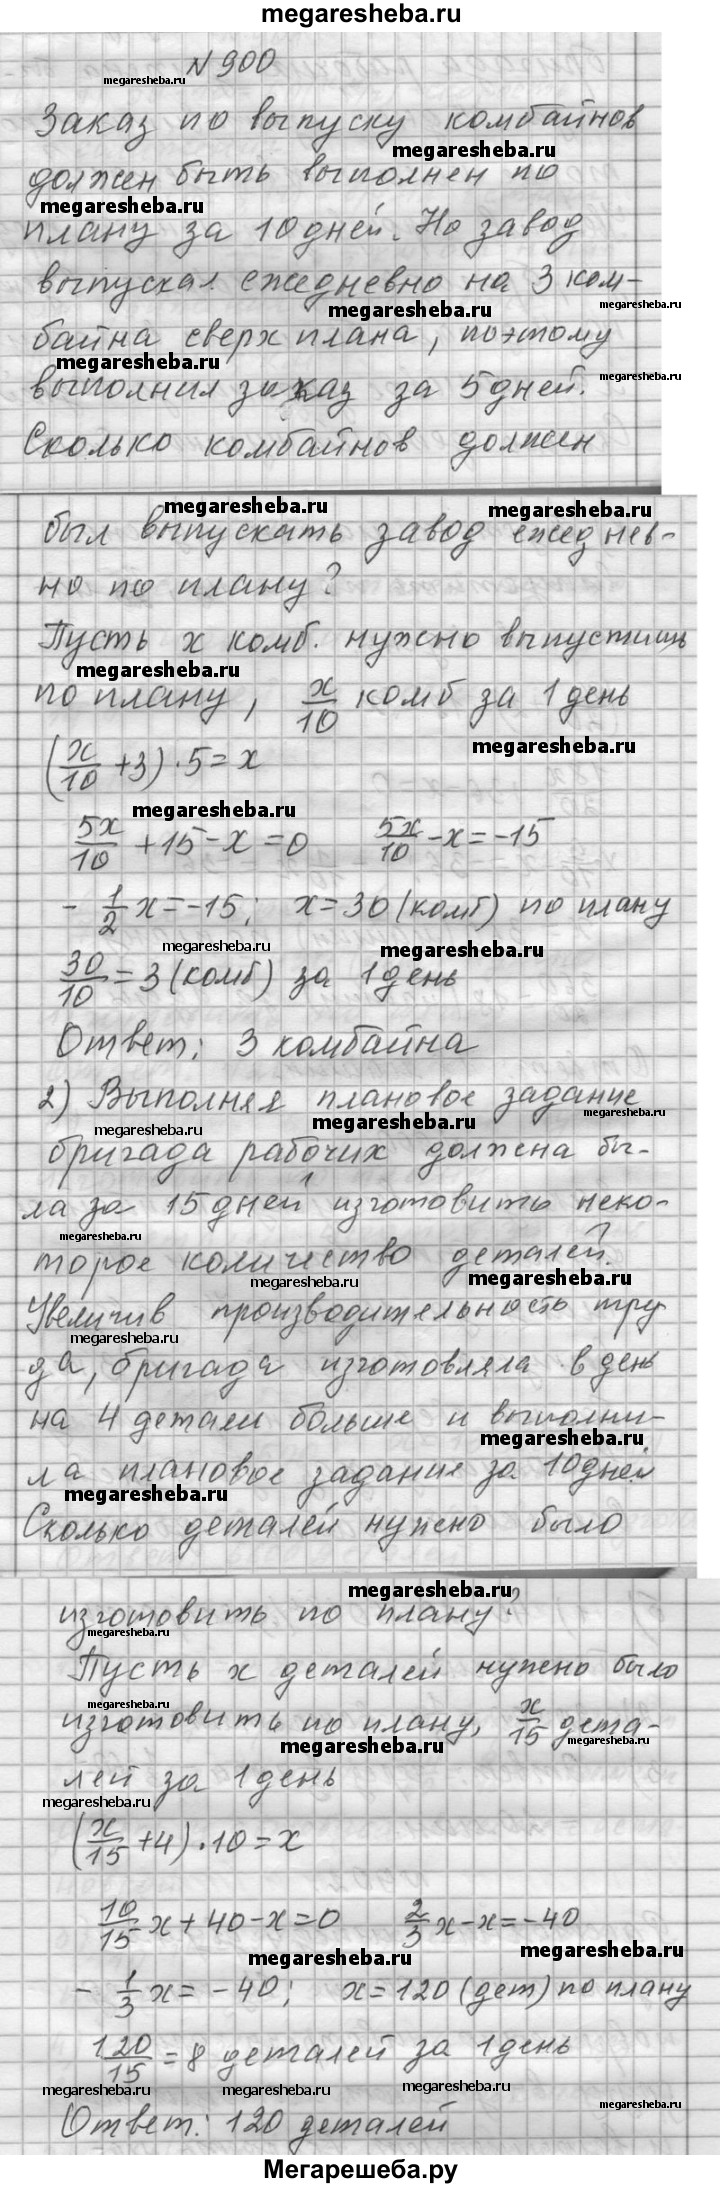 megaresheba.ru
N 900
megaresheba.ru
Заказ по выпуску комбайнов
megaresheba.ru
должен быть выполнен по
megaresheba.ru
плану за 10 дней. Но завод
выпускал ежедневно на 3 ком-
megaresheba.ru megaresheba.ru
байна сверх плана, поэтому
megaresheba.ru megaresheba.ru
выполнил заказ за 5 дней.
Сколько комбайнов должен
megaresheba.ru megaresheba.ru
был выпускать завод ежеднев-
но по плану?
Пусть x комб. нужно выпустить
megaresheba.ru
по плану, x/10 комб за 1 день
megaresheba.ru
(x/10 + 3) · 5 = x
megaresheba.ru
5x/10 + 15 - x = 0 5x/10 - x = -15
- 1/2 x = -15; x = 30 (комб) по плану
megaresheba.ru megaresheba.ru
30/10 = 3 (комб) за 1 день
Ответ: 3 комбайна
2) Выполняя плановое задание
megaresheba.ru megaresheba.ru megaresheba.ru
бригада рабочих должна бы-
ла за 15 дней изготовить неко-
megaresheba.ru
торое количество деталей.
megaresheba.ru megaresheba.ru
Увеличив производительность тру
megaresheba.ru
да, бригада изготовляла в день
на 4 детали больше и выполни-
megaresheba.ru
ла плановое задание за 10 дней
megaresheba.ru
Сколько деталей нужно было
megaresheba.ru
изготовить по плану?
megaresheba.ru
Пусть x деталей нужно было
megaresheba.ru
изготовить по плану, x/15 дета-
megaresheba.ru megaresheba.ru
лей за 1 день
megaresheba.ru
(x/15 + 4) · 10 = x
10/15 x + 40 - x = 0 2/3 x - x = -40
megaresheba.ru megaresheba.ru
- 1/3 x = -40; x = 120 (дет) по плану
120/15 = 8 деталей за 1 день
megaresheba.ru megaresheba.ru megaresheba.ru megaresheba.ru
Ответ: 120 деталей
Мегарешеба.ру